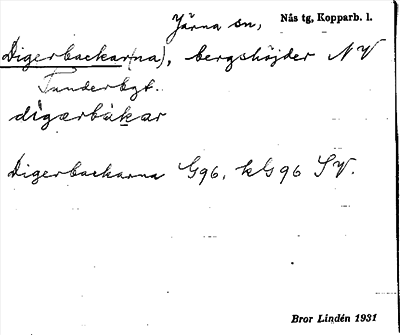 Järna sn, Nås tg, Kopparb. l.
Digerbackar(na), bergshöjder NV
Tunderbgt.
dìgærbàkar
Digerbackarna G96, kG96 SV.
Bror Lindén 1931